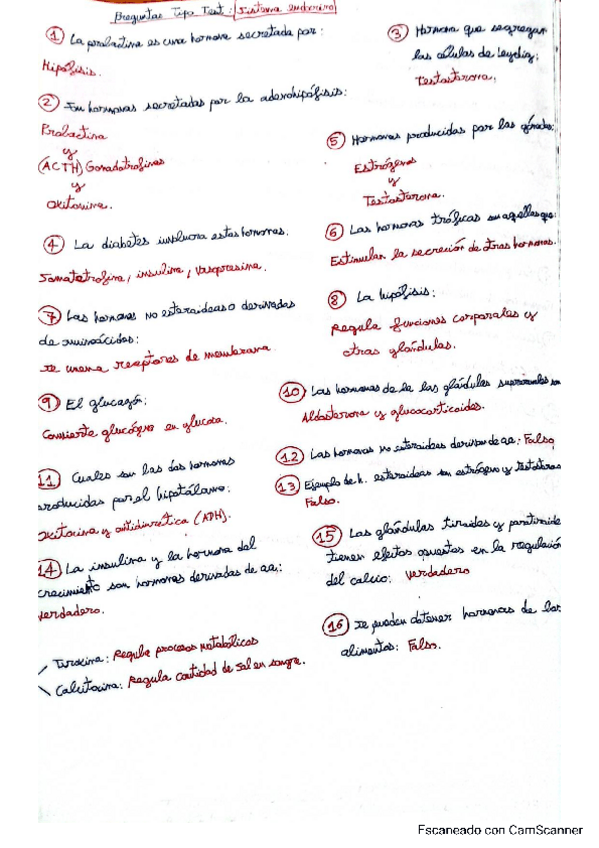 Preguntas Tipo Test: Sistema endocrino
① La prolactina es una hormona secretada por:
Hipófisis.
② Son hormonas secretadas por la adenohipófisis:
Prolactina
y
(ACTH) Gonadotrofinas
y
oxitocina.
③ Hormona que segregan
las células de Leydig:
Testosterona.
④ La diabetes involucra estas hormonas.
Somatotrofina, insulina, vasopresina.
⑤ Hormonas producidas por las gónadas:
Estrógenos
y
Testosterona.
⑥ Las hormonas tróficas son aquellas que:
Estimulan la secreción de otras hormonas.
⑦ Las hormonas no esteroideas o derivadas
de aminoácidos:
se unen a receptores de membrana
⑧ La hipófisis:
Regula funciones corporales y
otras glándulas.
⑨ El glucagón:
Convierte glucógeno en glucosa.
⑩ Las hormonas de la las glándulas suprarrenales son
Aldosterona y glucocorticoides.
11 Cuales son las dos hormonas
producidas por el hipotálamo:
oxitocina y antidiurética (ADH).
12 Las hormonas no esteroideas derivan de aa: Falso
13 Ejemplo de h. esteroideas son estrógeno y testosterona
Falso.
14 La insulina y la hormona del
crecimiento son hormonas derivadas de aa:
verdadero.
15 Las glándulas tiroides y paratiroides
tienen efectos opuestos en la regulación
del calcio: verdadero
16 se pueden obtener hormonas de los
alimentos: Falso.
Tiroxina: Regula procesos metabólicos
Calcitocina: Regula cantidad de sal en sangre.
Escaneado con CamScanner